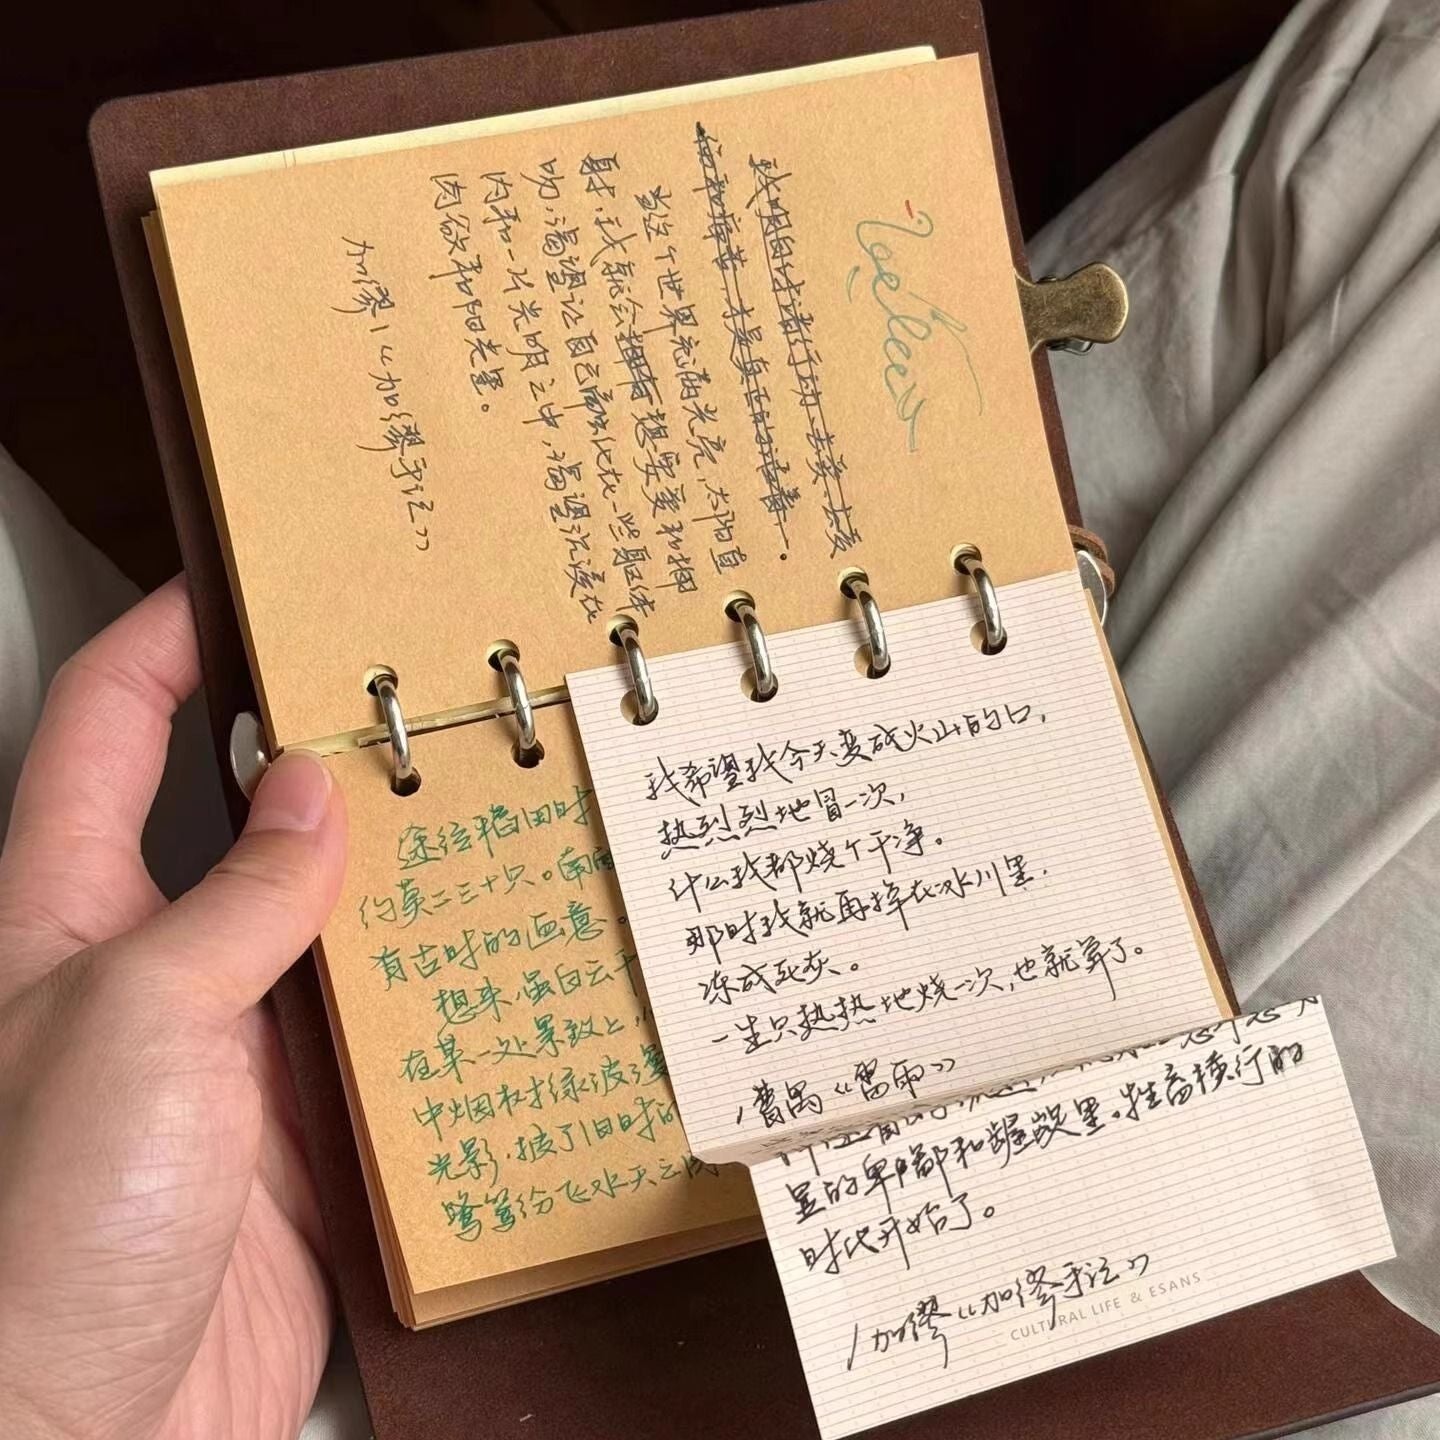 我明白过诸行动、去爱、去受
当这个世界充满光亮,太阳直
射,我就会拥有想要爱和拥
吻,渴望让自己融化在一些躯体
内和一片光明之中,渴望沉浸在
肉欲和阳光里。
加缪/《加缪手记》
途经稻田时
约莫二三十只。南
有古时的画意。
想来,虽白云千
在某一处景致上,
中烟
光影,披了旧时的
鹭鸶纷飞水天云间
我希望我今天变成火山的口,
热烈烈地冒一次,
什么我都烧个干净。
那时我就再掉在冰川里,
冻成死灰。
一生只热热地烧一次,也就算了。
/曹禺《雷雨》
里的卑鄙和龌龊里。牲畜横行的
时代开始了。
/加缪《加缪手记》
CULTURAL LIFE & ESANS